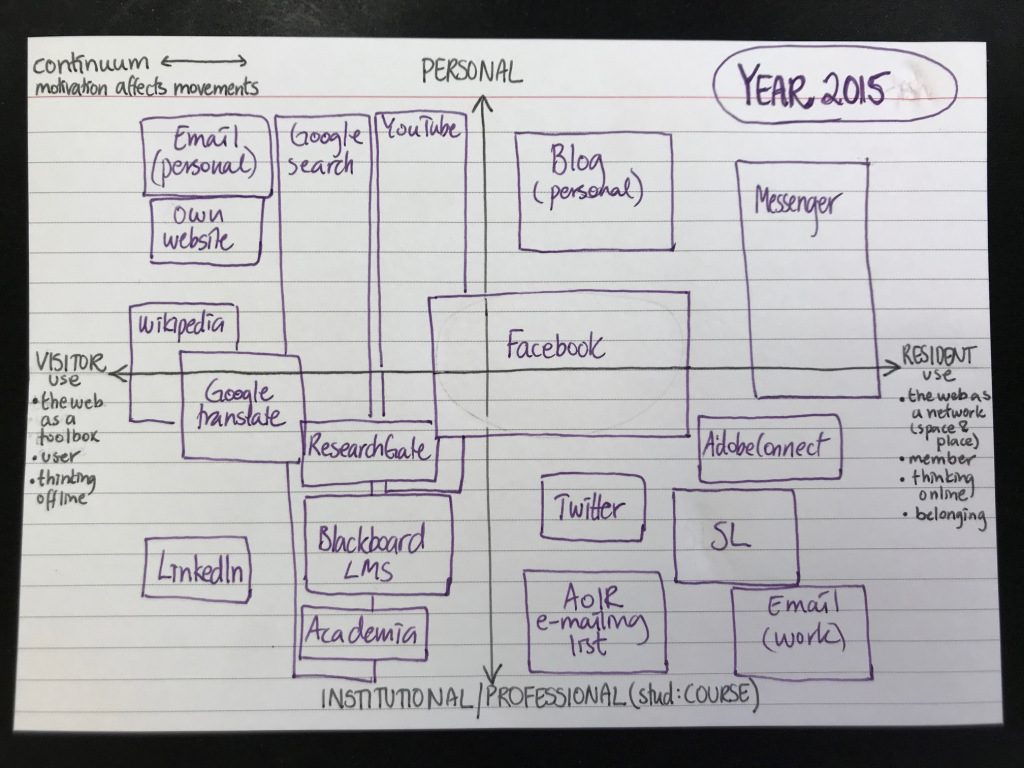 continuum
motivation affects movements
PERSONAL
YEAR 2015
Email
(personal)
Google
search
YouTube
Blog
(personal)
Messenger
own
website
Wikipedia
Facebook
VISITOR
use
• the web
as a
toolbox
• user
• thinking
offline
Google
translate
RESIDENT
use
• the web as
a network
(space &
place)
• member
• thinking
online
• belonging
ResearchGate
AdobeConnect
Twitter
SL
Blackboard
LMS
LinkedIn
AoIR
e-mailing
list
Email
(work)
Academia
INSTITUTIONAL/PROFESSIONAL (stud: COURSE)